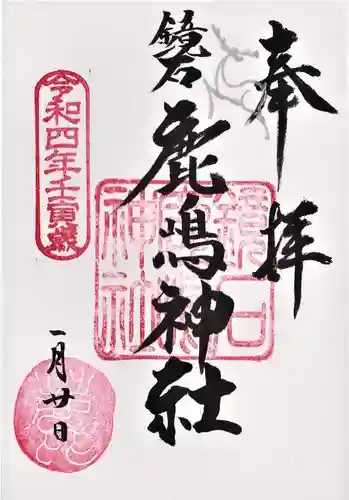 奉拝
鏡石
鹿嶋神社
令和四年壬寅歳
一月廿日